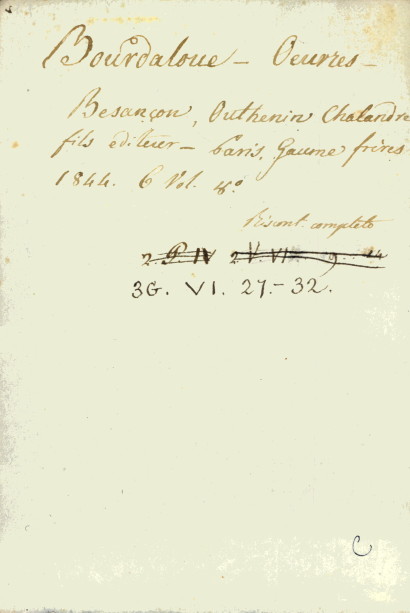 Bourdaloue - Oeuvres -
Besançon, Outhenin Chalandre
fils editeur - Paris, Gaume frères.
1844. 6 Vol. 8°
Riscont. completo
2. P. IV 2 V. VI 9. 14
3G. VI. 27.- 32.
C